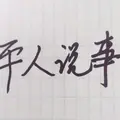 平人说事